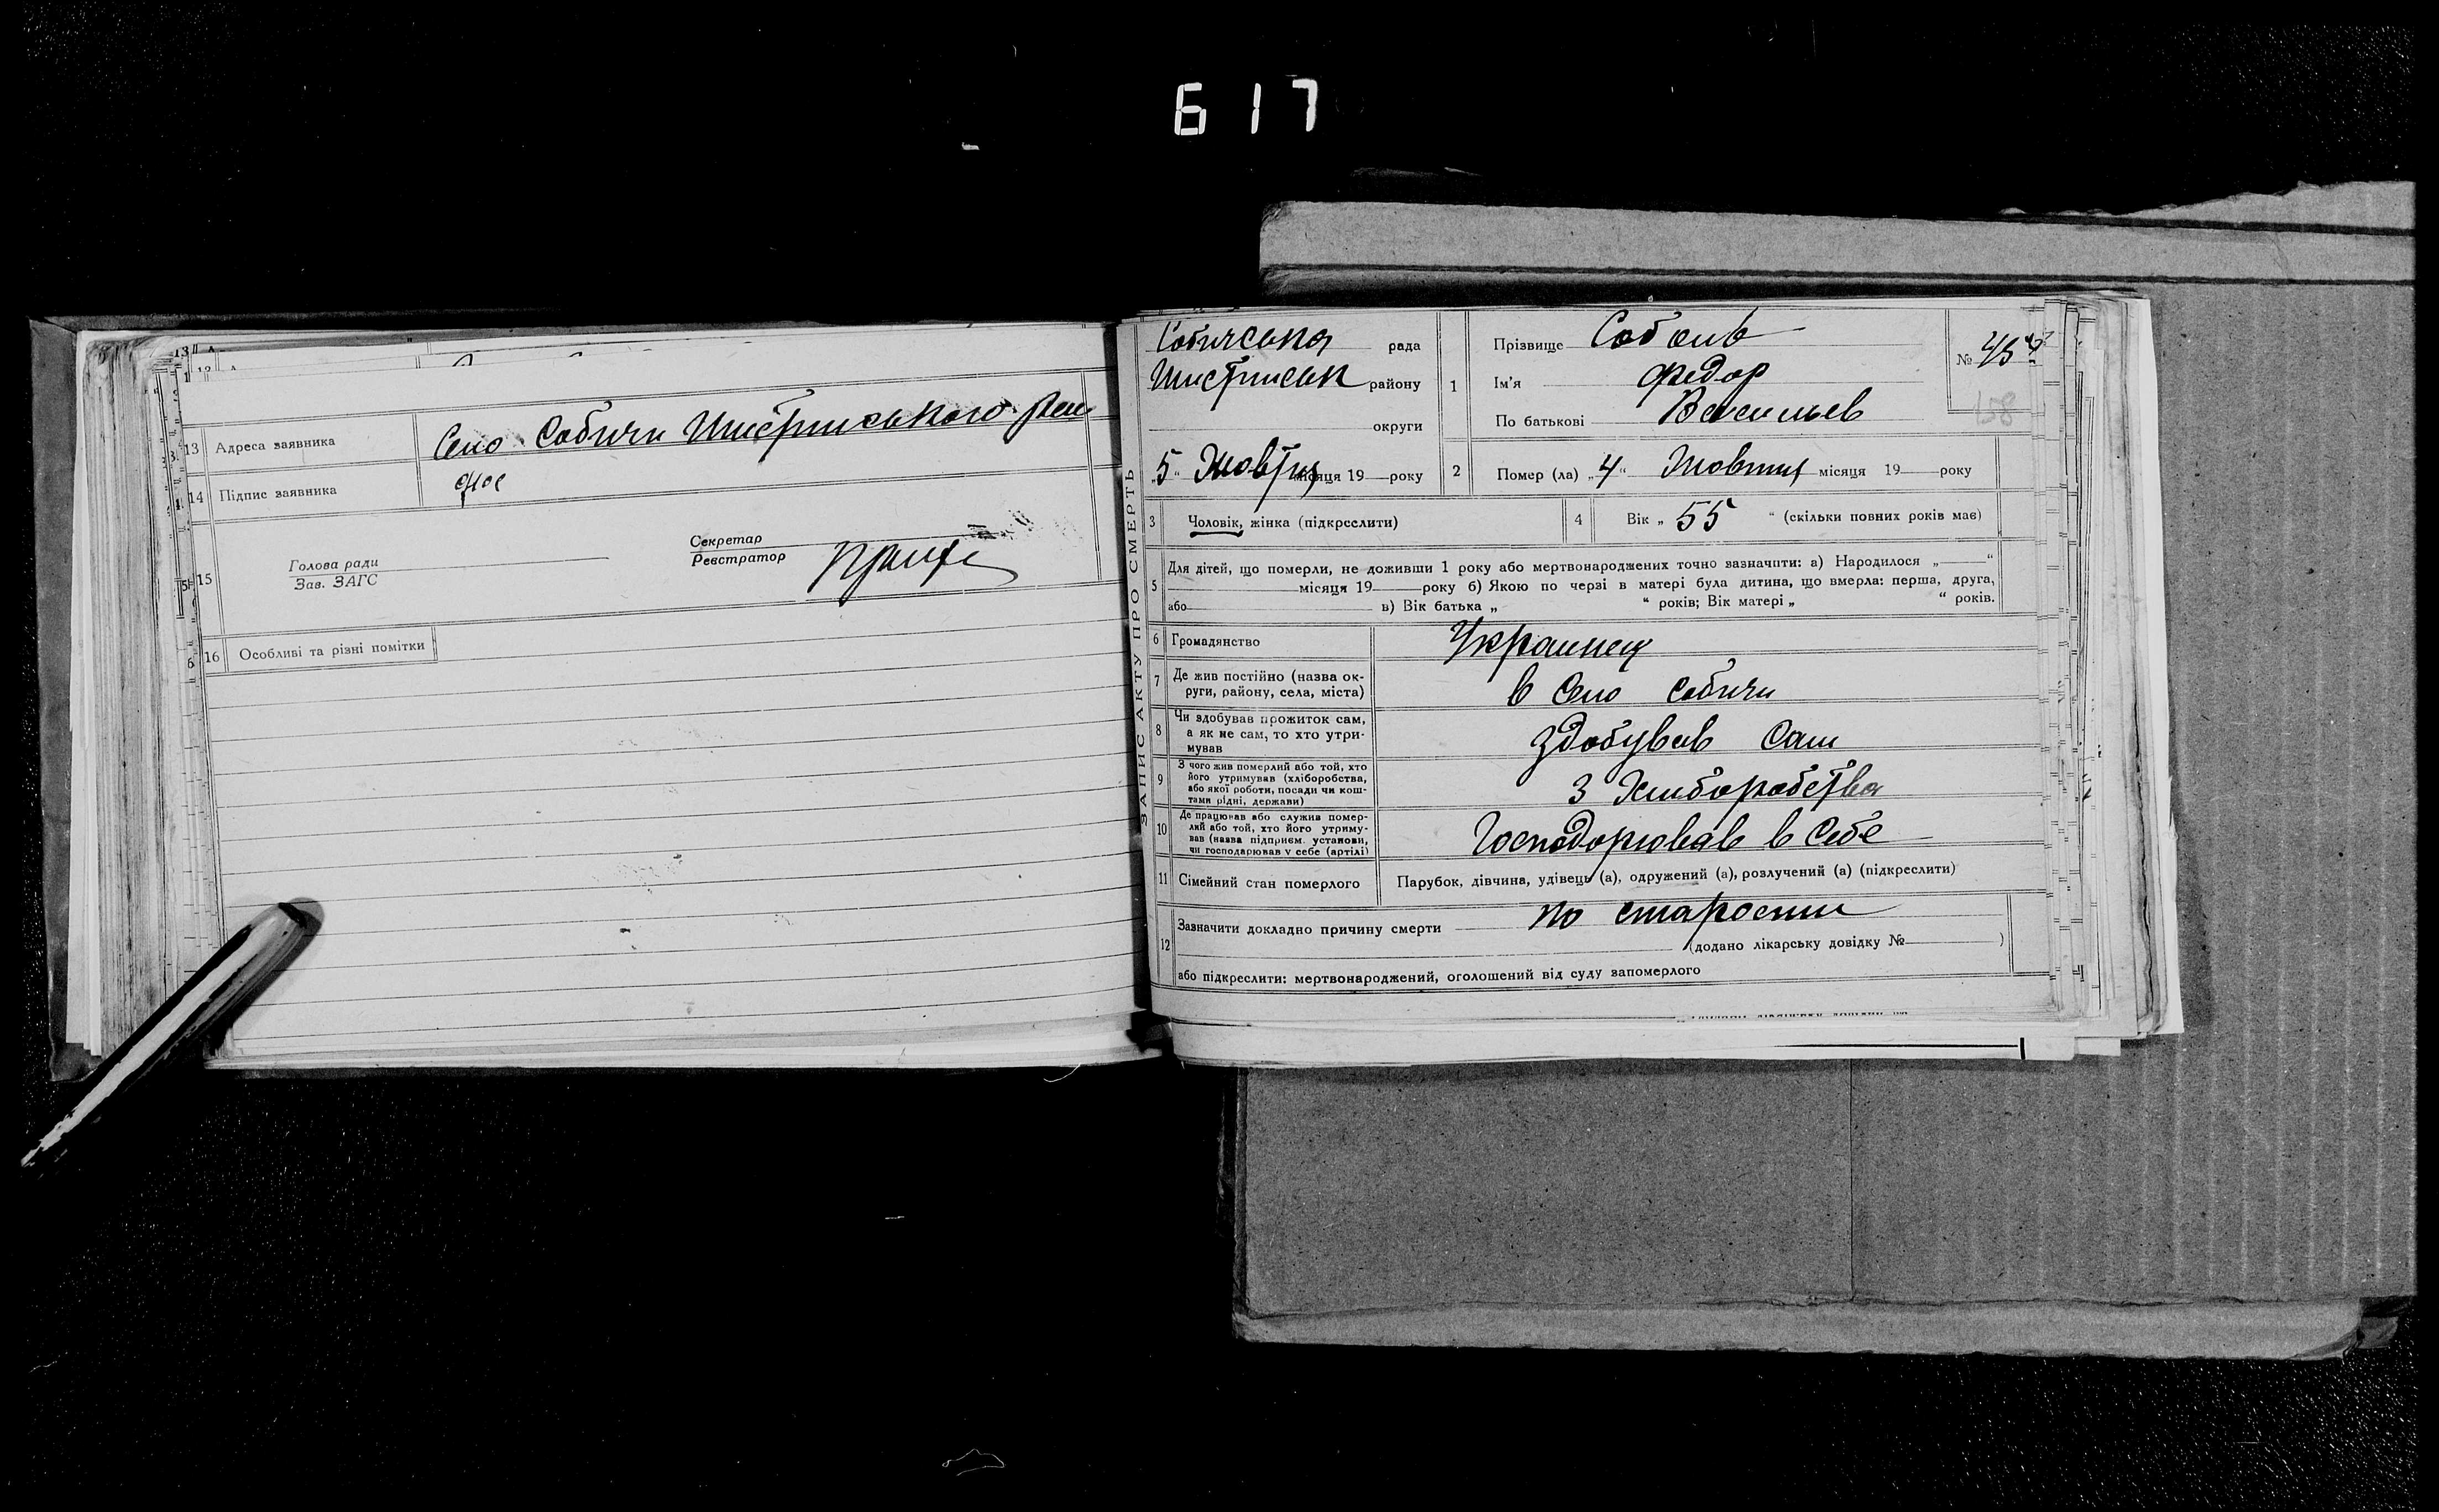 617
13 Адреса заявника Село Собичи Шистрииського Рай
14 Підпис заявника
15 Голова ради
Зав. ЗАГС
Секретар
Реєстратор
16 Особливі та різні помітки
ЗАПИС АКТУ ПРО СМЕРТЬ
Собичська рада
району
округи
„5“ Жовтня місяця 19 року
1 Прізвище
Ім'я Федор
По батькові Васильев
№ 45
158
2 Помер (ла) „4“ Жовтня місяця 19 року
3 Чоловік, жінка (підкреслити)
4 Вік „ 55 “ (скільки повних років має)
5 Для дітей, що померли, не доживши 1 року або мертвонароджених точно зазначити: а) Народилося „ “
місяця 19 року б) Якою по черзі в матері була дитина, що вмерла: перша, друга,
або в) Вік батька „ “ років; Вік матері „ “ років.
6 Громадянство Украинец
7 Де жив постійно (назва ок-
руги, району, села, міста) в Село Собичи
8 Чи здобував прожиток сам,
а як не сам, то хто утри-
мував здобував Сам
9 З чого жив померлий або той, хто
його утримував (хліборобства,
або якої роботи, посади чи кош-
тами рідні, держави) З Хлиборобства
10 Де працював або служив помер-
лий або той, хто його утриму-
вав (назва підприєм. установи,
чи господарював у себе (артілі) Господорював в Себе
11 Сімейний стан померлого Парубок, дівчина, удівець (а), одружений (а), розлучений (а) (підкреслити)
12 Зазначити докладно причину смерти по старости
(додано лікарську довідку № )
або підкреслити: мертвонароджений, оголошений від суду запомерлого